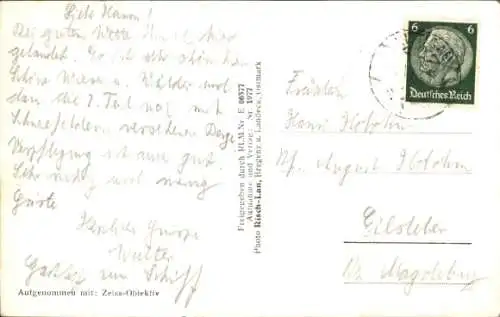 Liebe Hanni!
Bei guten Wetter hier
gelandet. Es ist sehr schön hier
Schöne Wiesen u. Wälder und
dann die z. Teil noch mit
Schneefeldern versehenen Berge
Verpflegung ist auch gut.
Sehr ruhig und wenig
Gäste
Herzliche Grüsse
Walter
Gasthof zum Schiff
Aufgenommen mit: Zeiss-Objektiv
Freigegeben durch RLM. Nr. E 06577
Aufnahme und Verlag: Nr. 1977
Photo Risch-Lau, Bregenz u. Landeck, Ostmark
6 6
Deutsches Reich
Fräulein
Hanni
August
Eilsleben
Bz. Magdeburg